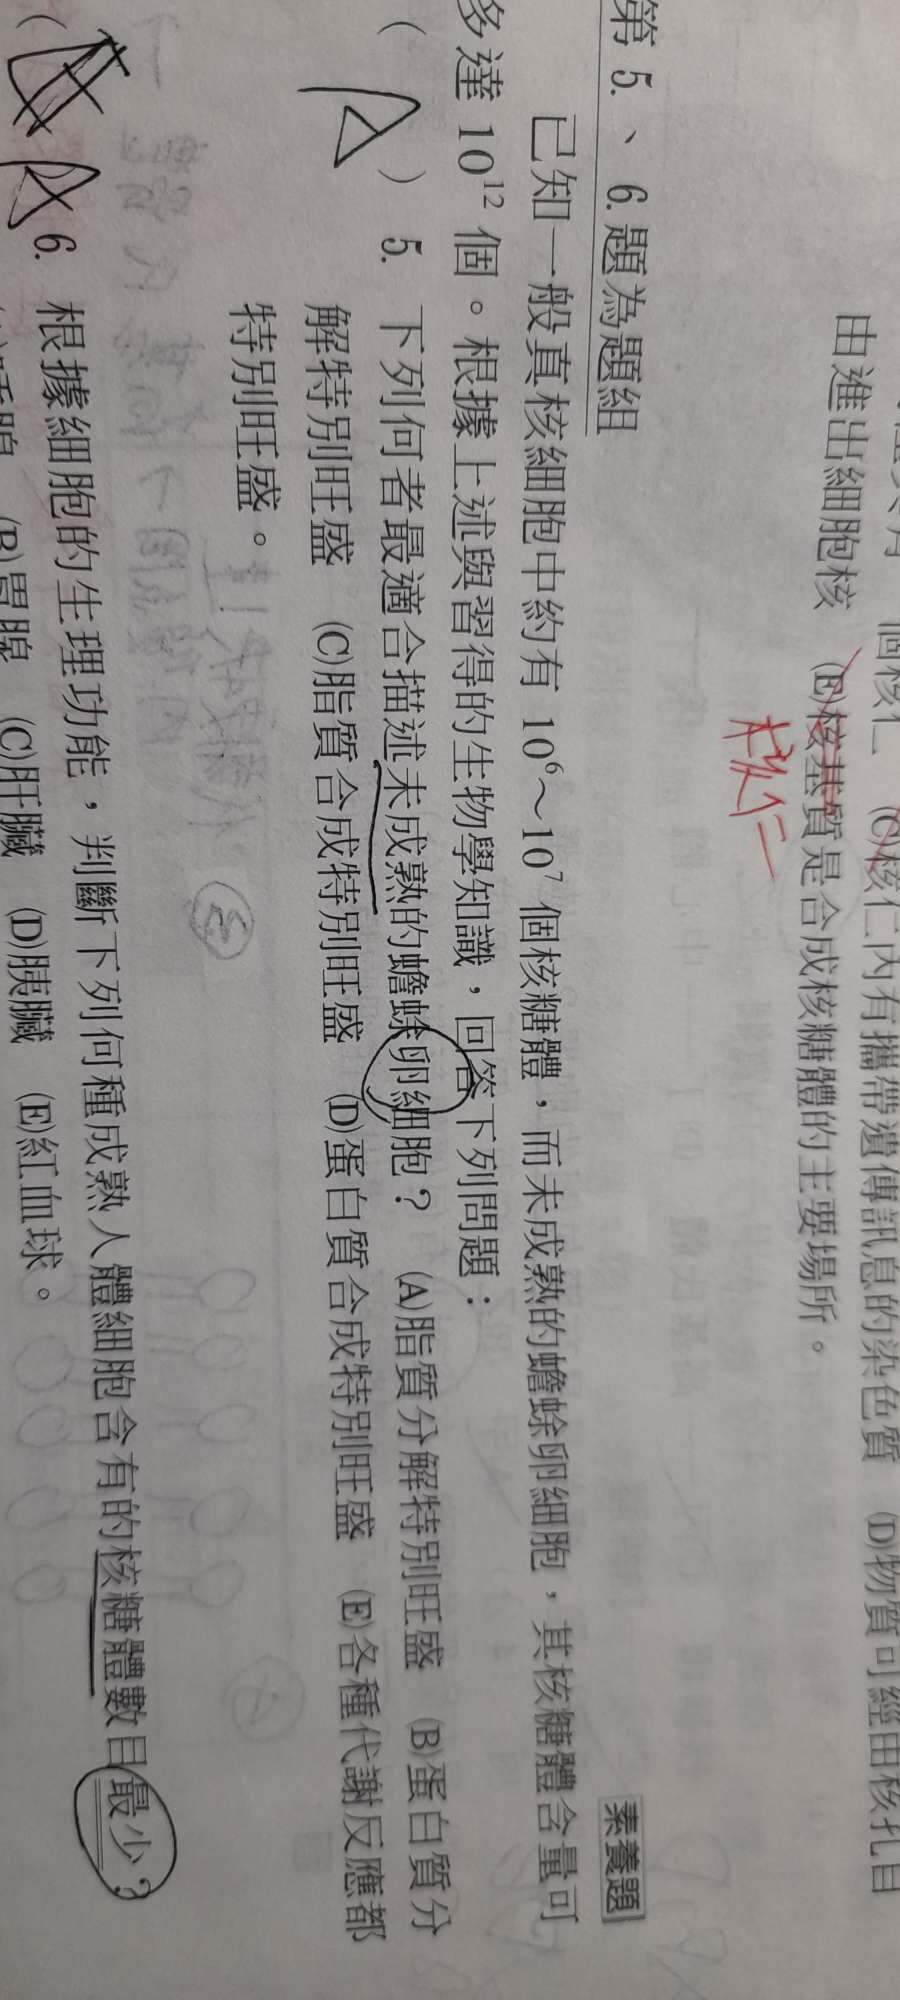 由進出細胞核 (E)核基質是合成核糖體的主要場所。
核仁
第 5. 、 6. 題為題組 素養題
已知一般真核細胞中約有 10⁶～10⁷ 個核糖體，而未成熟的蟾蜍卵細胞，其核糖體含量可
多達 10¹² 個。根據上述與習得的生物學知識，回答下列問題：
( ) 5. 下列何者最適合描述未成熟的蟾蜍卵細胞？ (A)脂質分解特別旺盛 (B)蛋白質分
解特別旺盛 (C)脂質合成特別旺盛 (D)蛋白質合成特別旺盛 (E)各種代謝反應都
特別旺盛。
( 6. 根據細胞的生理功能，判斷下列何種成熟人體細胞含有的核糖體數目最少？
(B)胃腺 (C)肝臟 (D)胰臟 (E)紅血球。